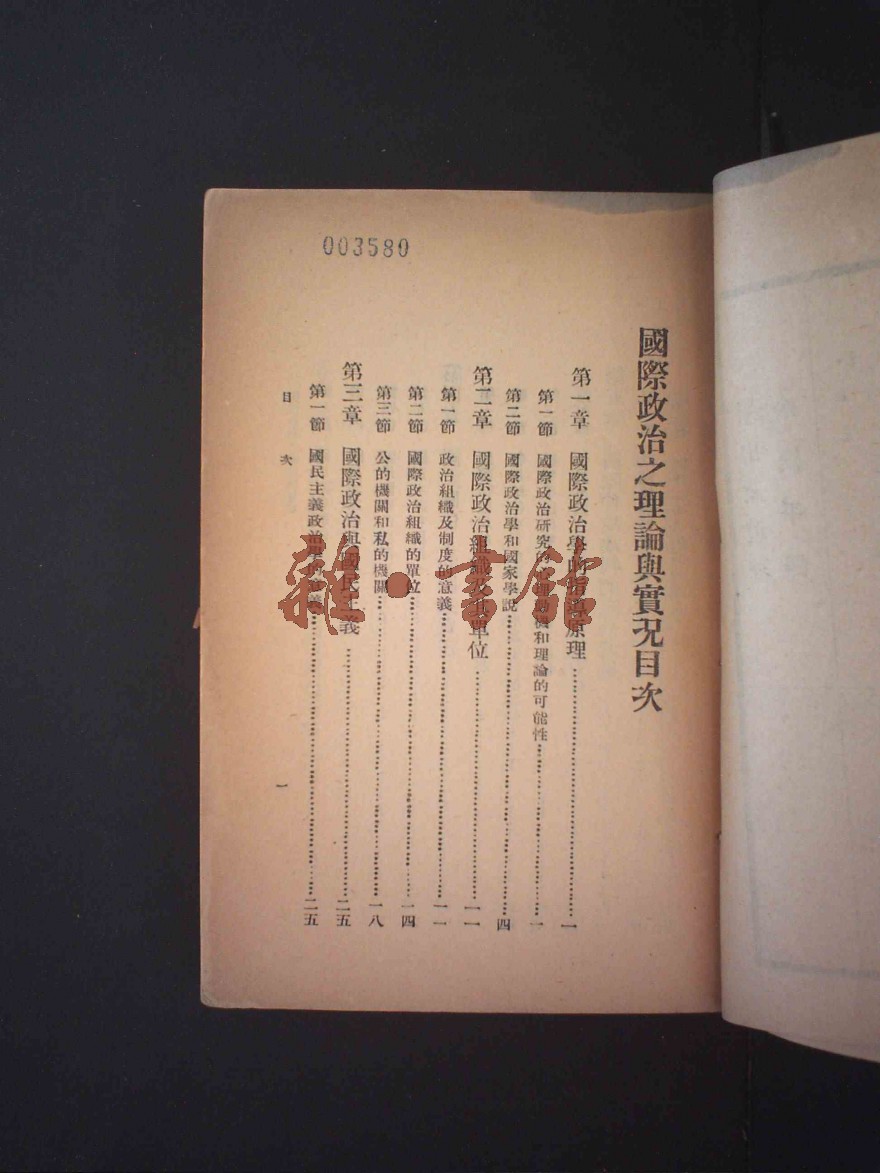 003580
國際政治之理論與實況目次
第一章 國際政治學的指導原理……一
第一節 國際政治研究的心理動機和理論的可能性……一
第二節 國際政治學和國家學說……四
第二章 國際政治組織及其單位……一一
第一節 政治組織及制度的意義……一一
第二節 國際政治組織的單位……一四
第三節 公的機關和私的機關……一八
第三章 國際政治與國民主義……二五
第一節 國民主義政治學的意義……二五
目次
一
雜·書館